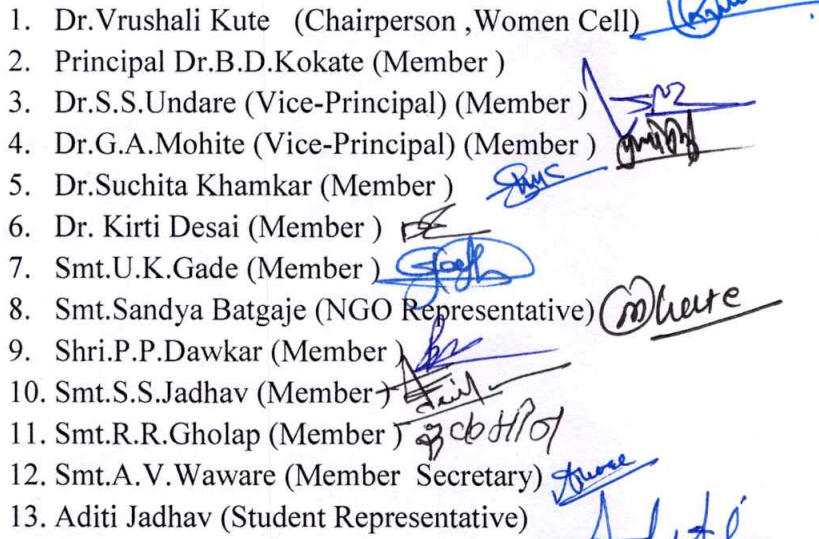 1. Dr.Vrushali Kute (Chairperson ,Women Cell)
2. Principal Dr.B.D.Kokate (Member )
3. Dr.S.S.Undare (Vice-Principal) (Member )
4. Dr.G.A.Mohite (Vice-Principal) (Member )
5. Dr.Suchita Khamkar (Member )
6. Dr. Kirti Desai (Member )
7. Smt.U.K.Gade (Member )
8. Smt.Sandya Batgaje (NGO Representative)
9. Shri.P.P.Dawkar (Member )
10. Smt.S.S.Jadhav (Member )
11. Smt.R.R.Gholap (Member )
12. Smt.A.V.Waware (Member Secretary)
13. Aditi Jadhav (Student Representative)